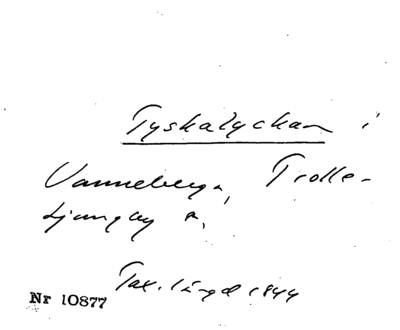 Tyskalyckan i
Vanneberga, Trolle-
Ljungby s.
Tax. längd 1844
Nr 10877